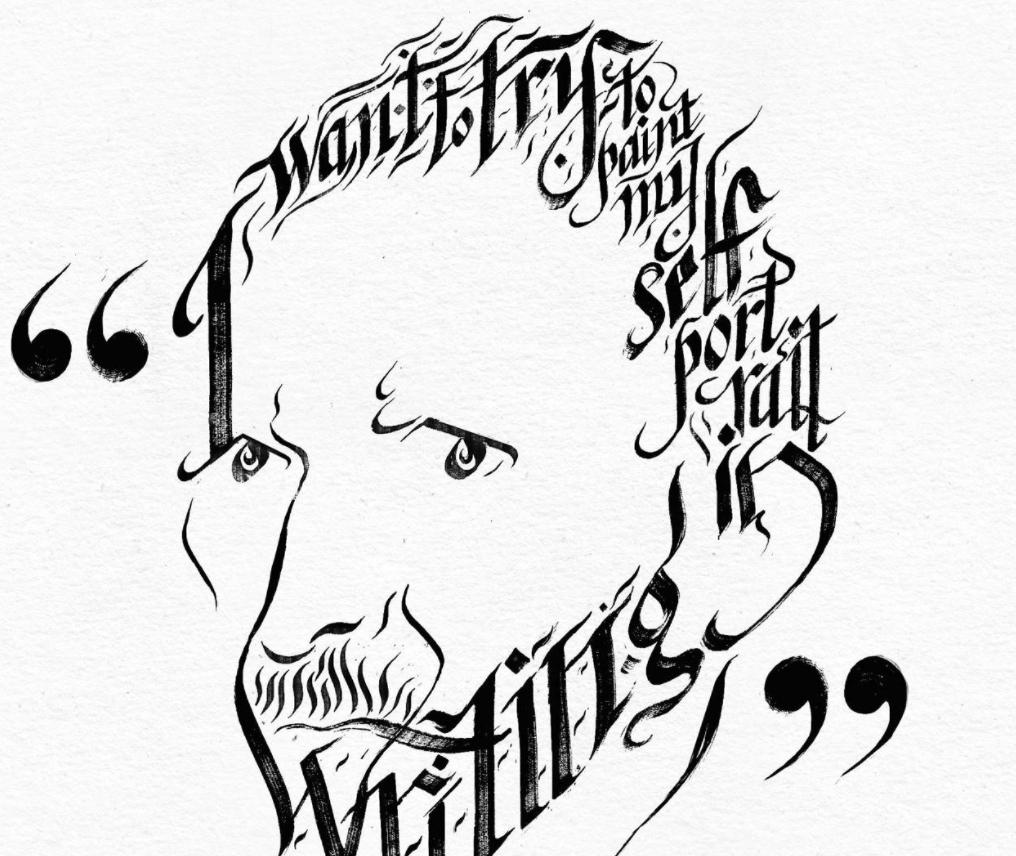 “I want to try to
paint
my
self
port
rait
in
writing”